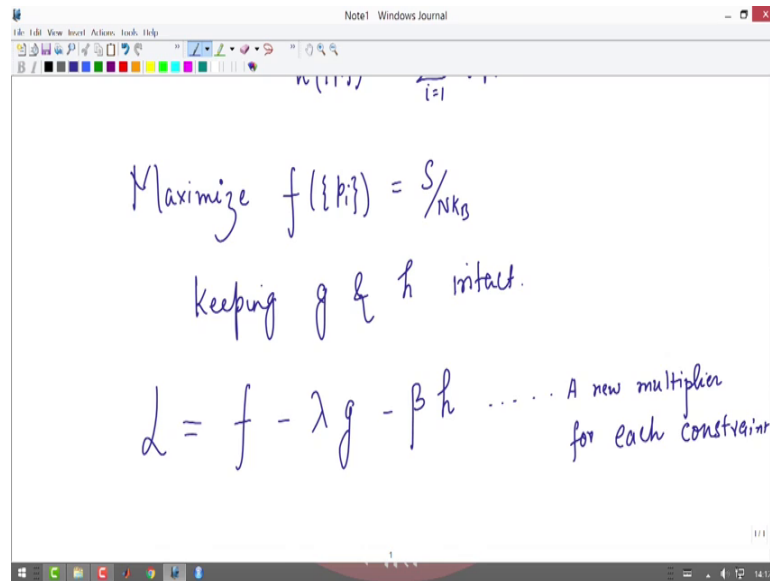 Note1 Windows Journal
File Edit View Insert Actions Tools Help
i=1
Maximize f({pi}) = S/NKB
Keeping g & h intact.
L = f - λg - βh ..... A new multiplier
for each constraint
1/1
1
14:12